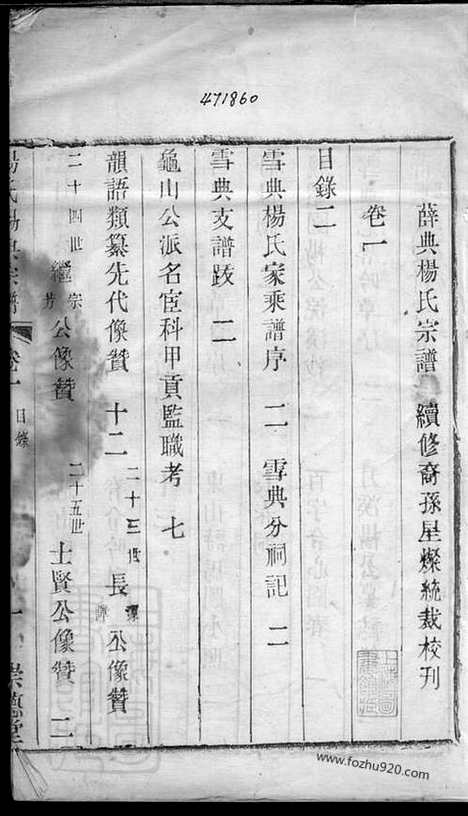 471860
薛典楊氏宗譜 續修裔孫星燦統裁校刊
卷一
目錄二
雪典楊氏家乘譜序 二 雪典分祠記 二
雪典支譜跋 二
龜山公派名宦科甲貢監職考 七
韻語類纂先代像贊 十二 二十三世 長 公像贊
二十四世 繼宗 公像贊 二十五世 士賢公像贊 二
卷一 目錄 一 崇德堂
www.fozhu920.com